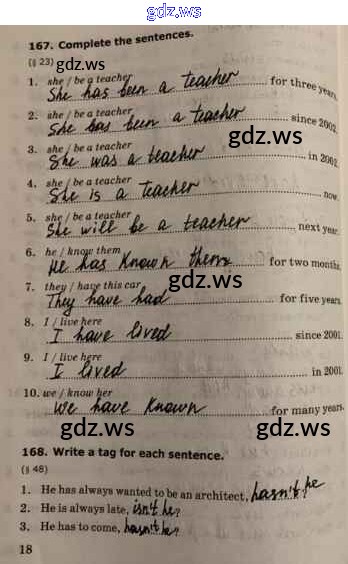 gdz.ws
167. Complete the sentences.
(§ 23)
gdz.ws
1. she / be a teacher
She has been a teacher for three years.
2. she / be a teacher
She has been a teacher since 2002.
gdz.ws
3. she / be a teacher
She was a teacher in 2002.
4. she / be a teacher
She is a teacher now.
5. she / be a teacher
She will be a teacher next year.
6. he / know them
He has known them for two months.
gdz.ws
7. they / have this car
They have had for five years.
8. I / live here
I have lived since 2001.
9. I / live here
I lived in 2001.
10. we / know her
we have known for many years.
gdz.ws
gdz.ws
168. Write a tag for each sentence.
(§ 48)
1. He has always wanted to be an architect, hasn't he?
2. He is always late, isn't he?
3. He has to come, hasn't he?
18
gdz.ws